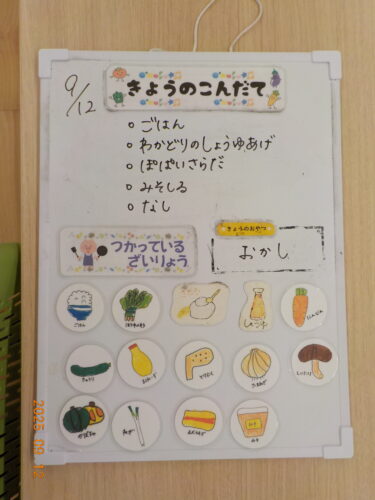 9/12
きょうのこんだて
ごはん
わかどりのしょうゆあげ
ぽぱいさらだ
みそしる
なし
つかっている
ざいりょう
きょうのおやつ
おかし
ごはん
にんじん
きゅうり
とりにく
たまねぎ
しいたけ
かぼちゃ
ねぎ
みそ
2025 09 12